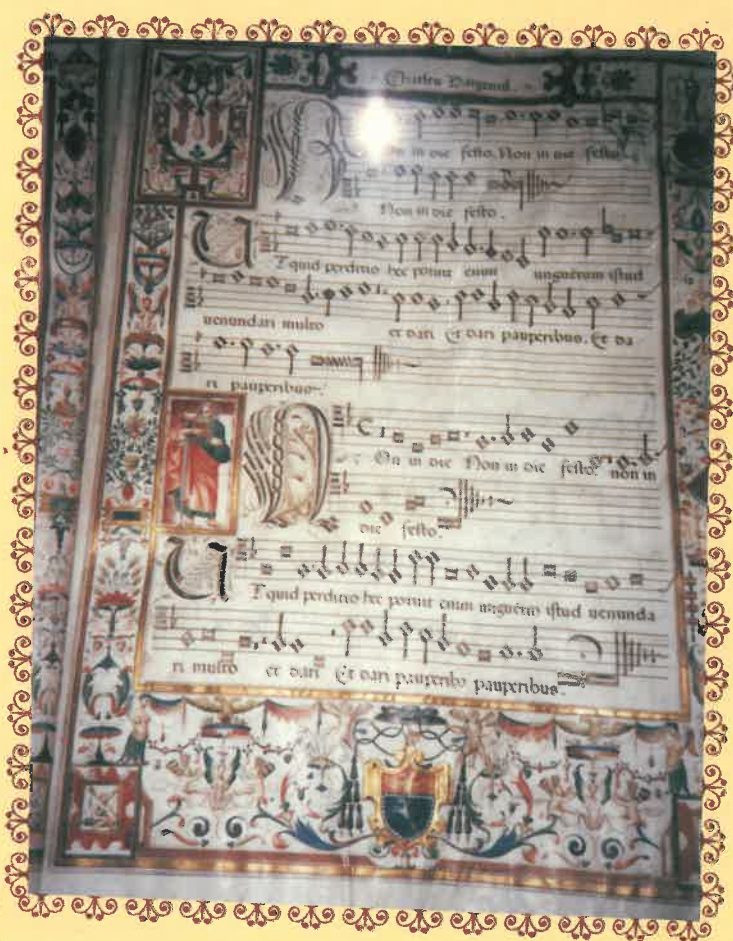 Charles Dargentil.
Non in die festo. Non in die festo
Non in die festo.
UT quid perditio hec potuit enim unguentum istud
uenundari multo et dari Et dari pauperibus. Et da
ri pauperibus.
NOn in die Non in die festo. non in
die festo.
UT quid perditio hec potuit enim unguētū istud uenunda
ri multo et dari Et dari pauperibꝰ pauperibus.